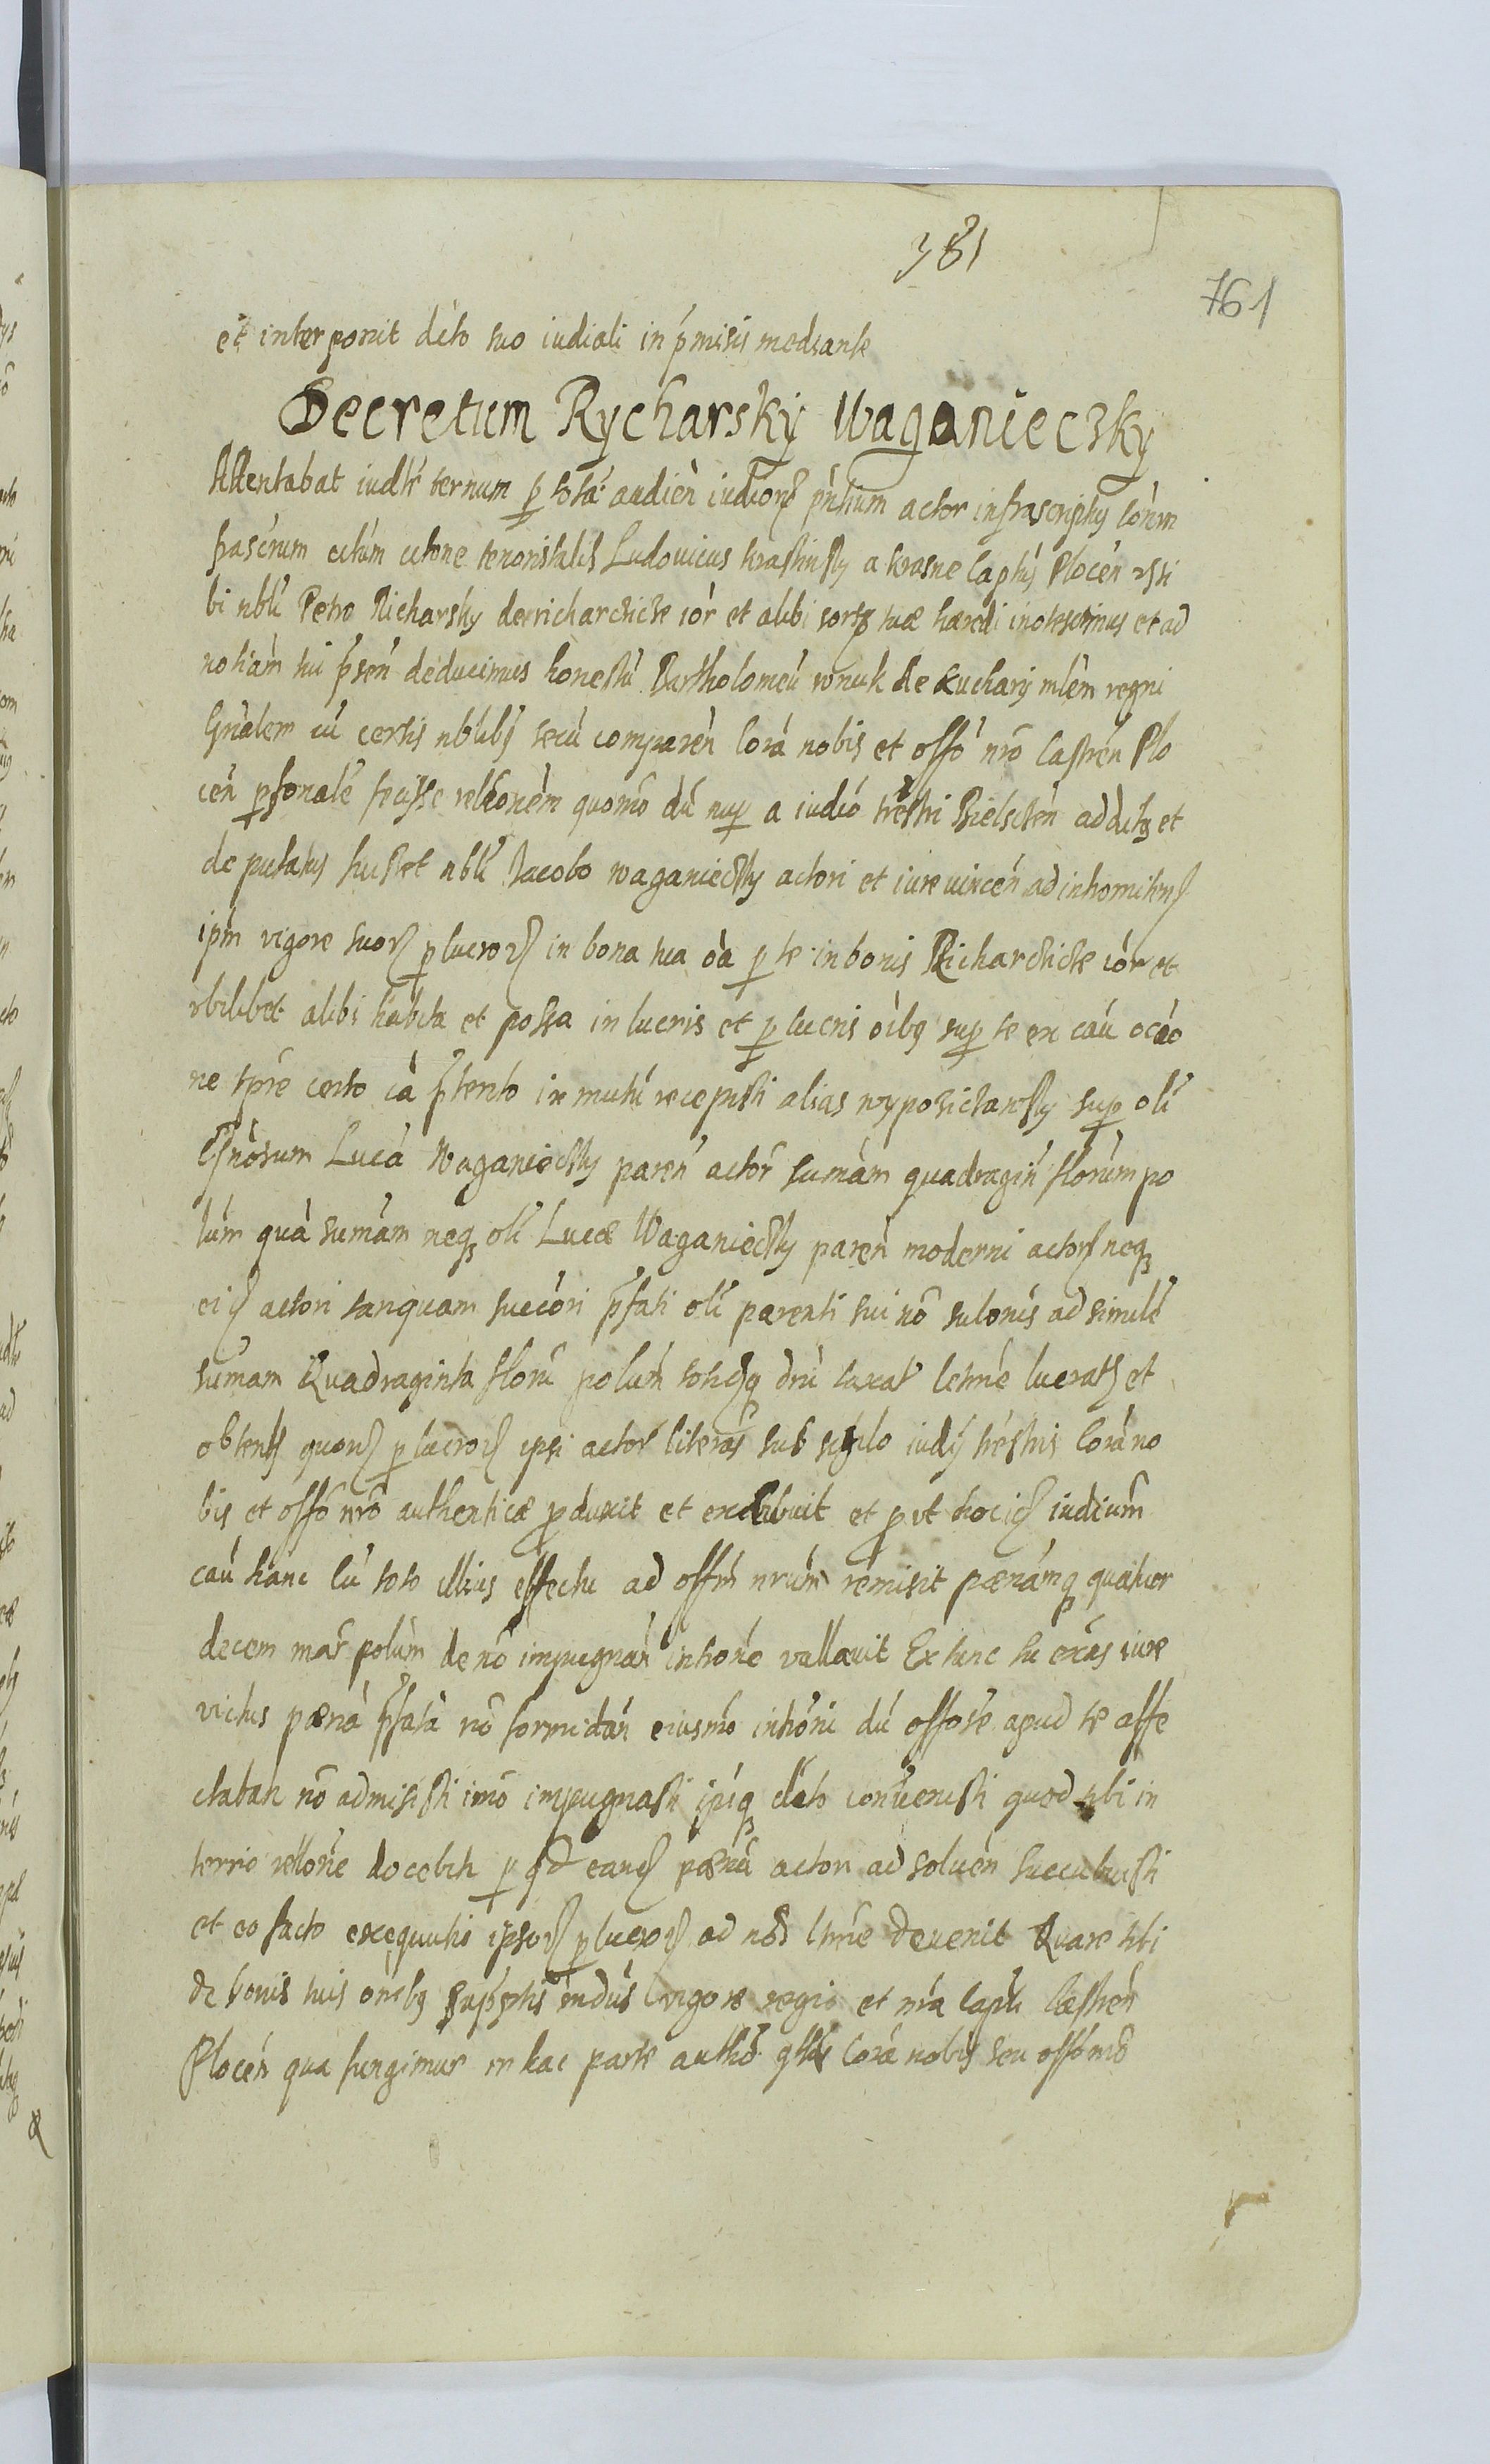 381
761
et interponit dcto suo iudiali in pmisis mediante
Decretum Rycharsky Waganieczky
Attentabat iudlr ternum p totã audien iudiorz pntium actor infrascriptus Conin
frascrum citum citone tenoris talis Ludovicus krassinsky a krasne Captus Plocen
bi nbli Petro Richarsky de richarczicze ior et alibi sortz tuæ hæredi inotescimus et ad
notiam tui psen deducimus honestu Bartholomeu wnuk de kuchary mlem regni
Gnalem cu certis nblibus secu comparen Cora nobis et offo nro Castren Plo
cen psonale fecisse rellonem quomo du nup a iudio trestri Bielscen additus et
deputatus fuisset nbli Jacobo waganieczky actori et iure vincen ad intromitten
ipm vigore suorz plucrorz in bona tua oa p te in bonis Richarczicze ior et
vbilibet alibi habita et possa in lucris et plucris oibus sup te ex cau ocao
ne tpre certo ia ptento in mutu recepisti alias wypozictansky sup oli
Gnosum Luca Waganieczky paren actor sumam quadragin florum po
lum qua sumam neq oli Lucæ Waganieczky paren moderni actoris neq
eid actori tanquam succori pfati oli parenti sui no sulonis ad simile
sumam Quadraginta floru polum totidq dni taxat letme lucratz et
obtentz quorz plucrorz ipsi actor literas sub sigilo iudy trestris Cora no
bis et offo nro authenticæ pduxit et exhibuit et put hocid iudium
cau hanc cu toto illius effectu ad offm nrum remisit pænamq quatuor
decem mar polum de no impugnan introne vallavit Ex tunc tu exas iure
victus pæna pfata no formidan eiusmo introni du offose apud te affe
ctaban no admisisti imo impugnasti ipiq dcto convenisti quod tibi in
termo rellone docebit p qd eand pæna actori ad soluen succubuisti
et eo facto exequutio ipsorz plucrorz ad nos ltme devenit Quare tibi
de bonis tuis onibus supsctis indus vigore regio et nra captu Castren
Plocen qua fungimur in hac parte autho qtus Cora nobis seu offo nro